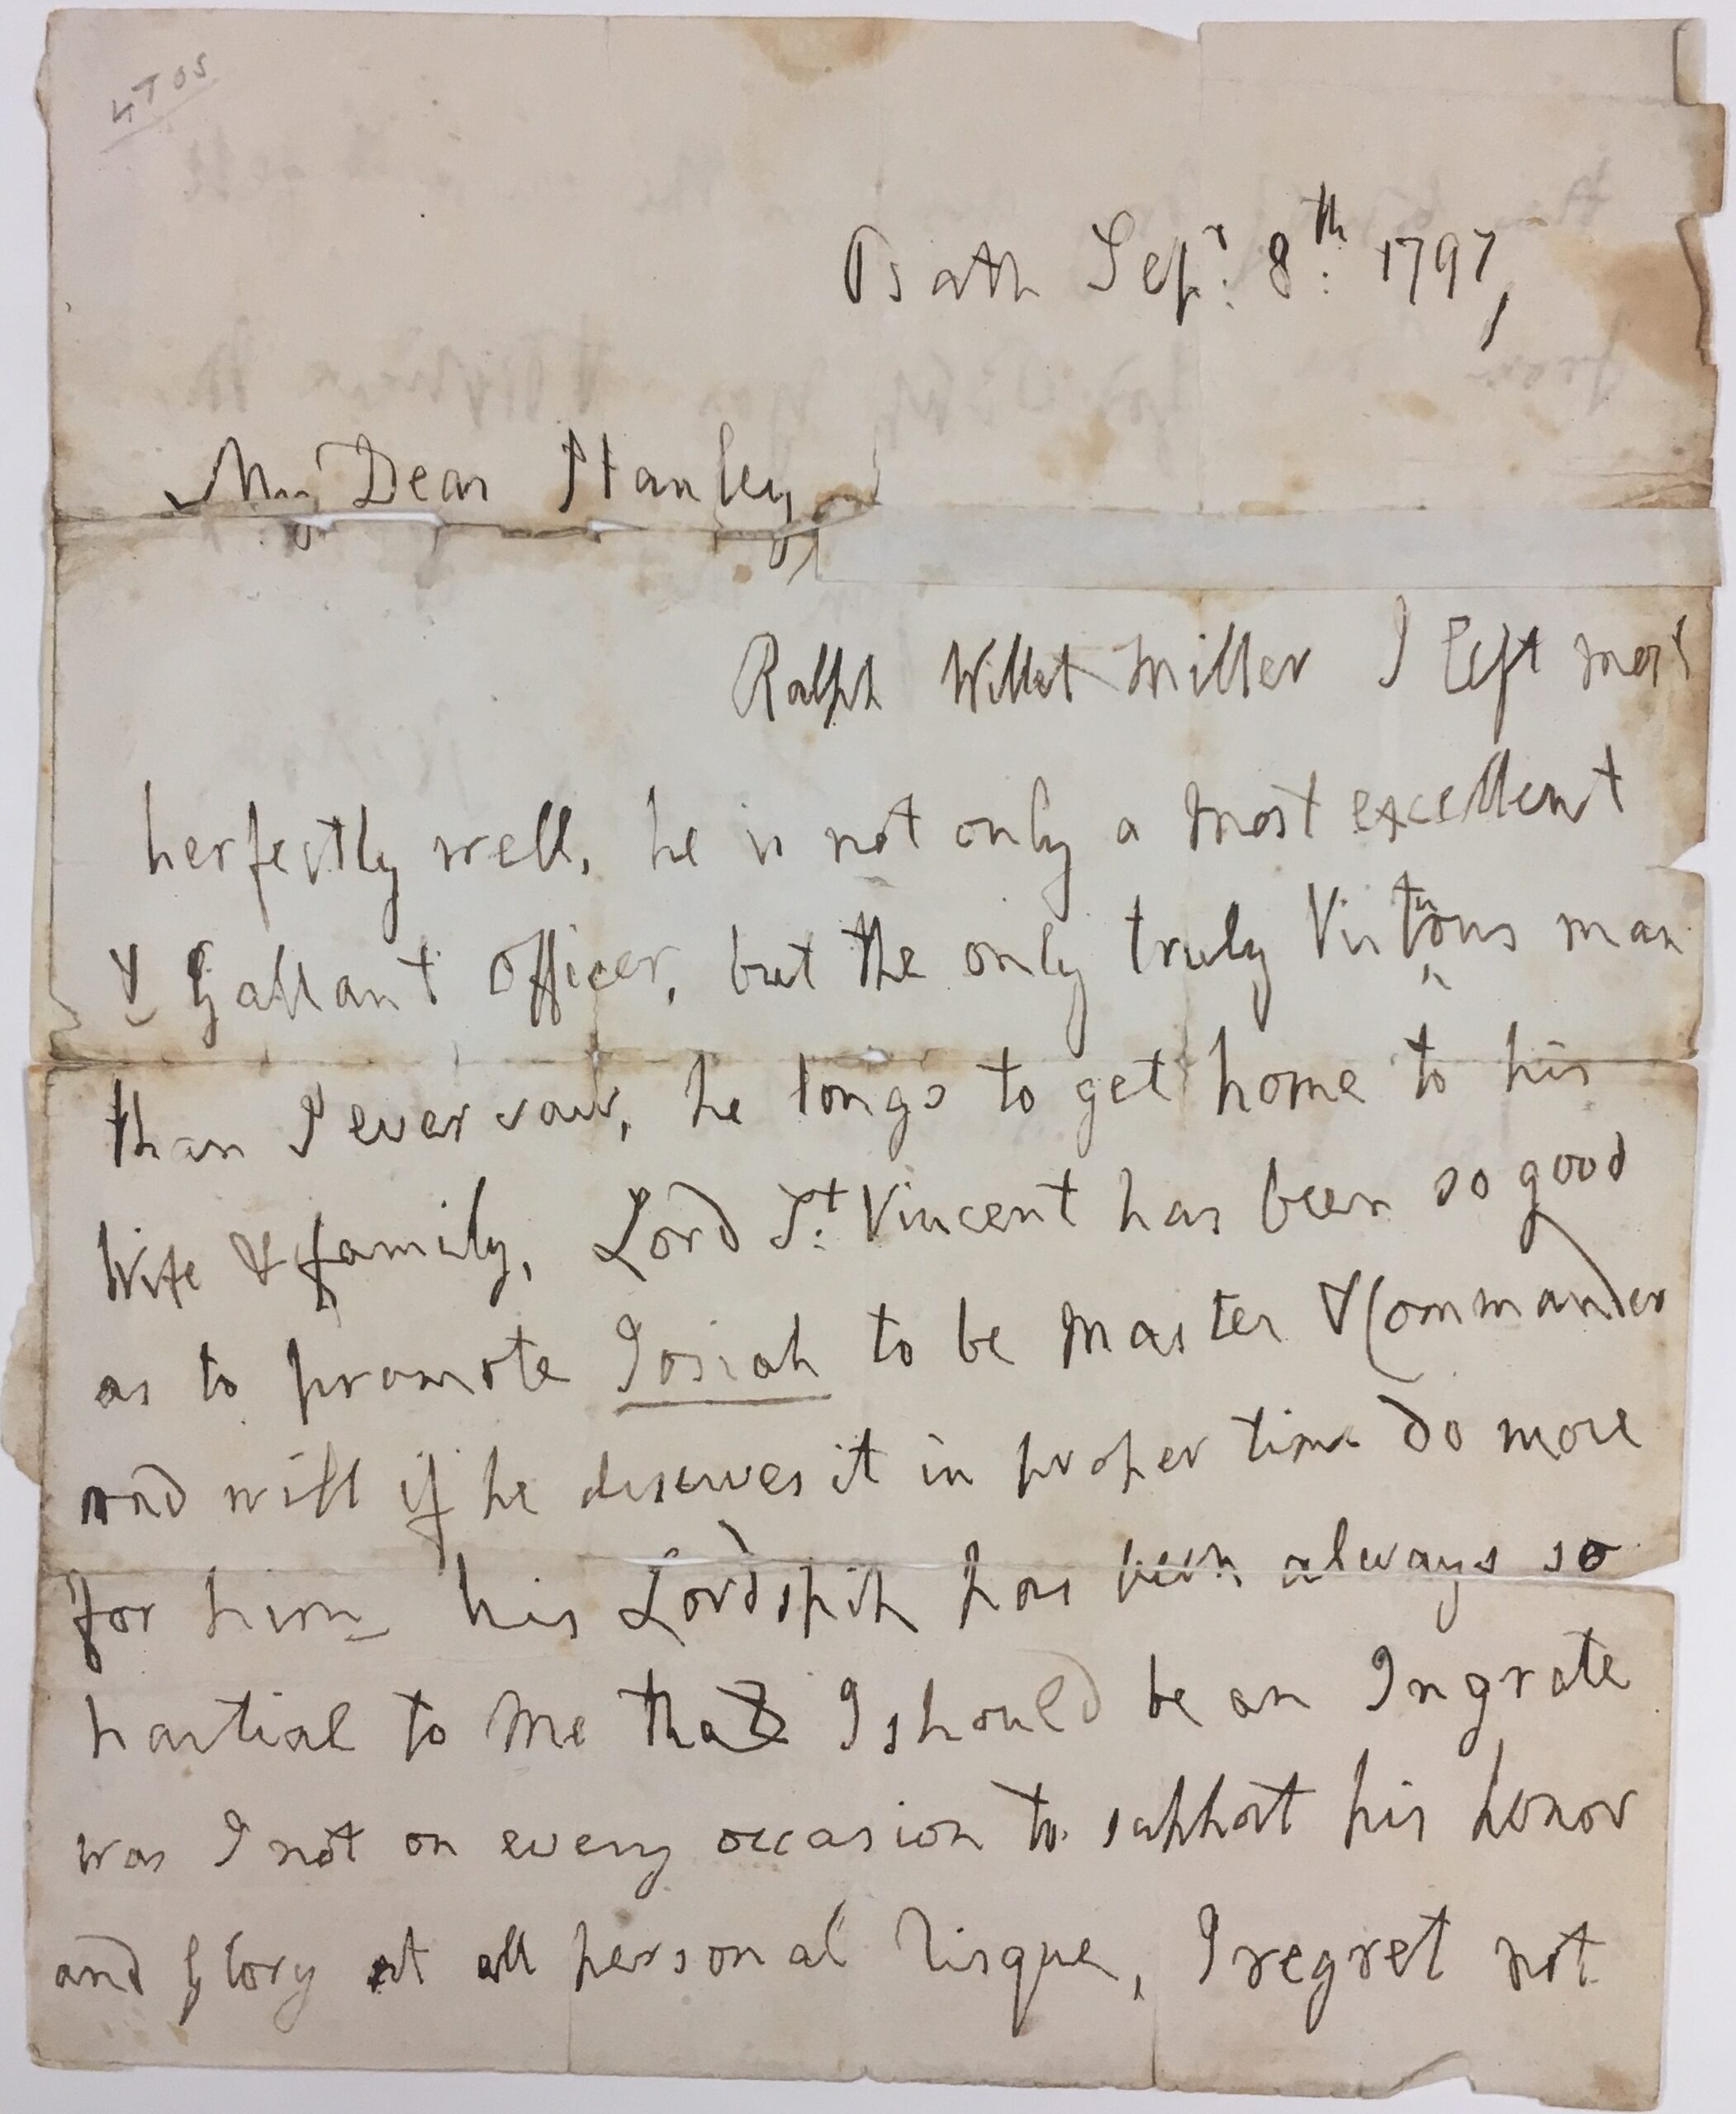 Bath Sepr. 8th: 1797,
My Dear Stanley
Ralph Willet Miller I left most
perfectly well, he is not only a most excellent
& Gallant officer, but the only truly Virtuous man
than I ever saw, he longs to get home to his
Wife & family, Lord St. Vincent has been so good
as to promote Josiah to be Master & Commander
and will if he deserves it in proper time do more
for him his Lordship has been always so
partial to me that I should be an Ingrate
was I not on every occasion to support his honor
and Glory at all personal risque, I regret not